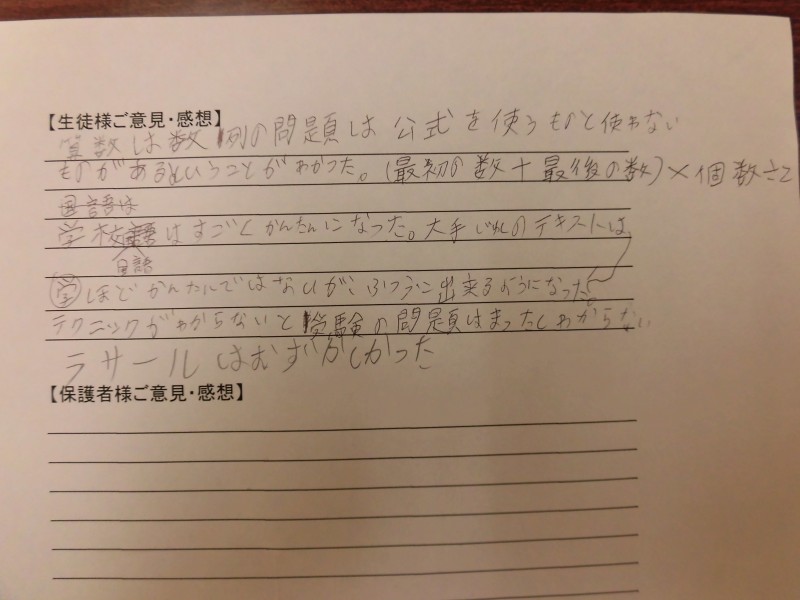 【生徒様ご意見・感想】
算数は数列の問題は公式を使うものと使わない
ものがあるということがわかった。(最初の数+最後の数)×個数÷2
国語は
学校国語はすごくかんたんになった。大手じゅくのテキストは
国語
学ほどかんたんではないが、ふつうに出来るようになった。
テクニックがわからないと受験の問題はまったくわからない
ラサールはむずかしかった
【保護者様ご意見・感想】